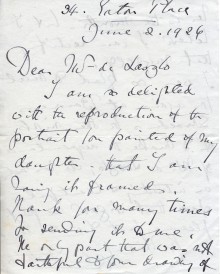 34. Eaton Place
June 2. 1926
Dear Mr de Laszlo
I am so delighted
with the reproduction of the
portrait you painted of my
daughter that I am
having it framed.
Thank you many times
for sending it to me.
The only part that was not
faithful to your drawing of